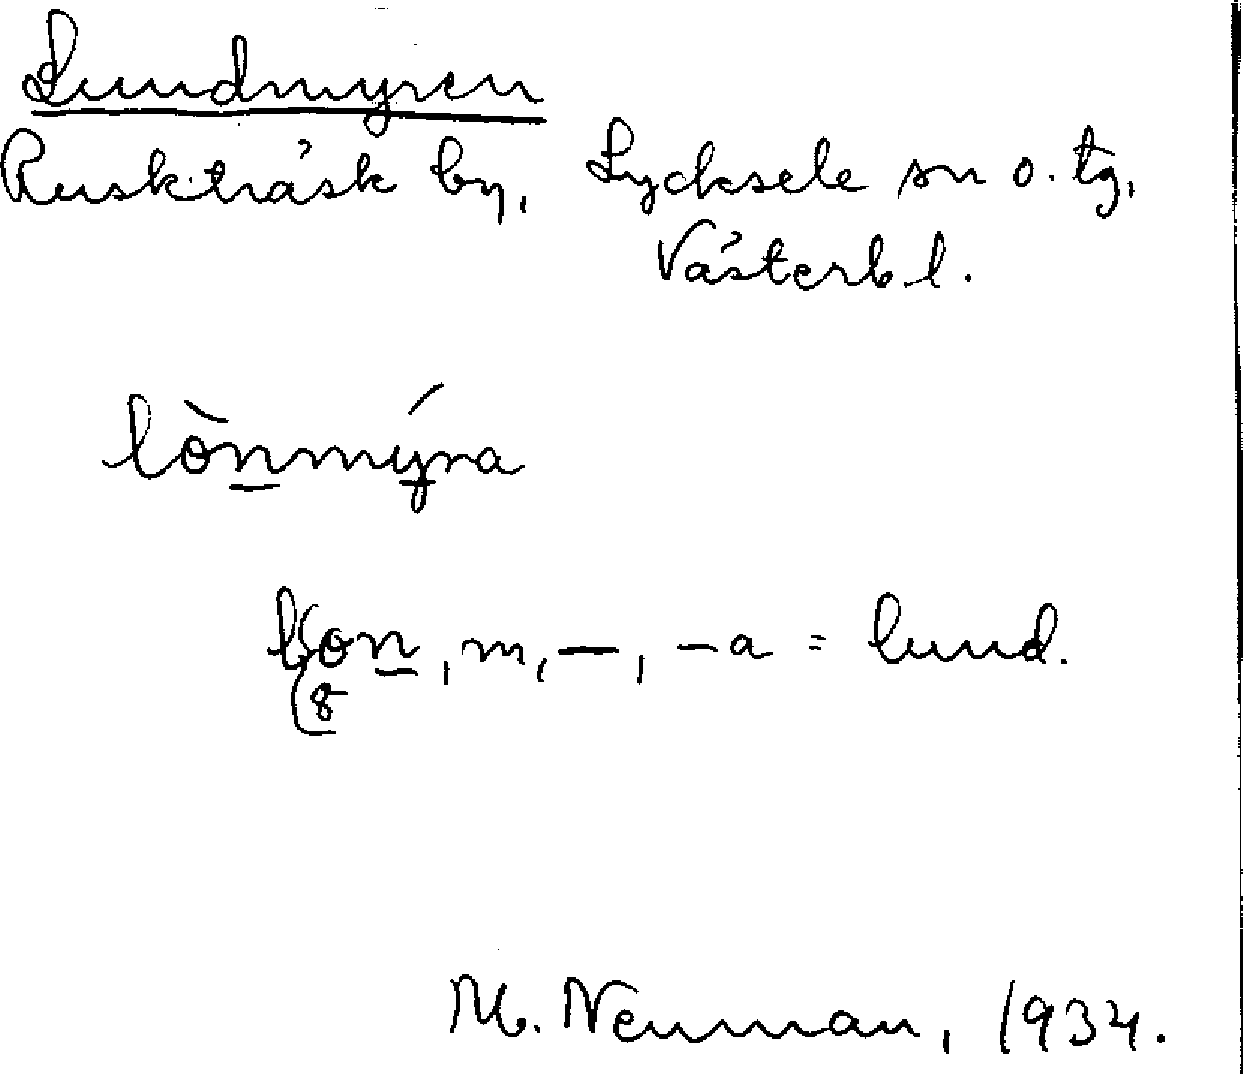 Lundmyren
Ruskträsk by, Lycksele sn o. tg,
Västerb. l.
lònmýra
lon, m, —, -a = lund.
8
M. Neuman, 1934.